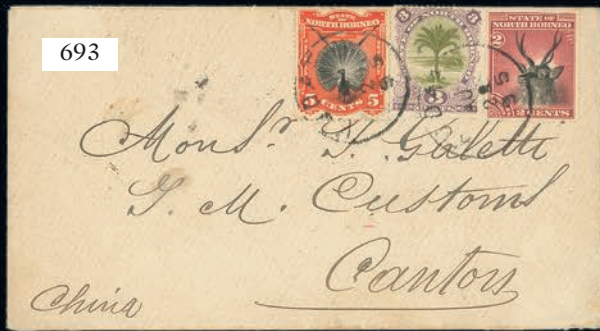 693
STATE OF
NORTH BORNEO
5 CENTS 5
3
BORNEO
3
STATE OF
NORTH BORNEO
2
2 CENTS
Monsr. J. Galetti
I. M. Customs
Canton
China